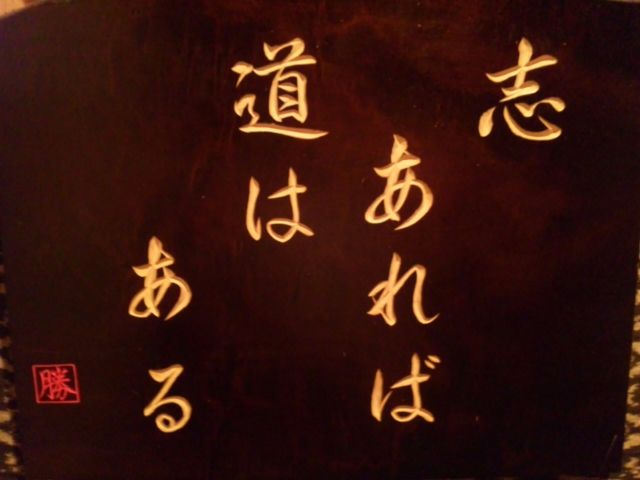 志
あれば
道は
ある
勝